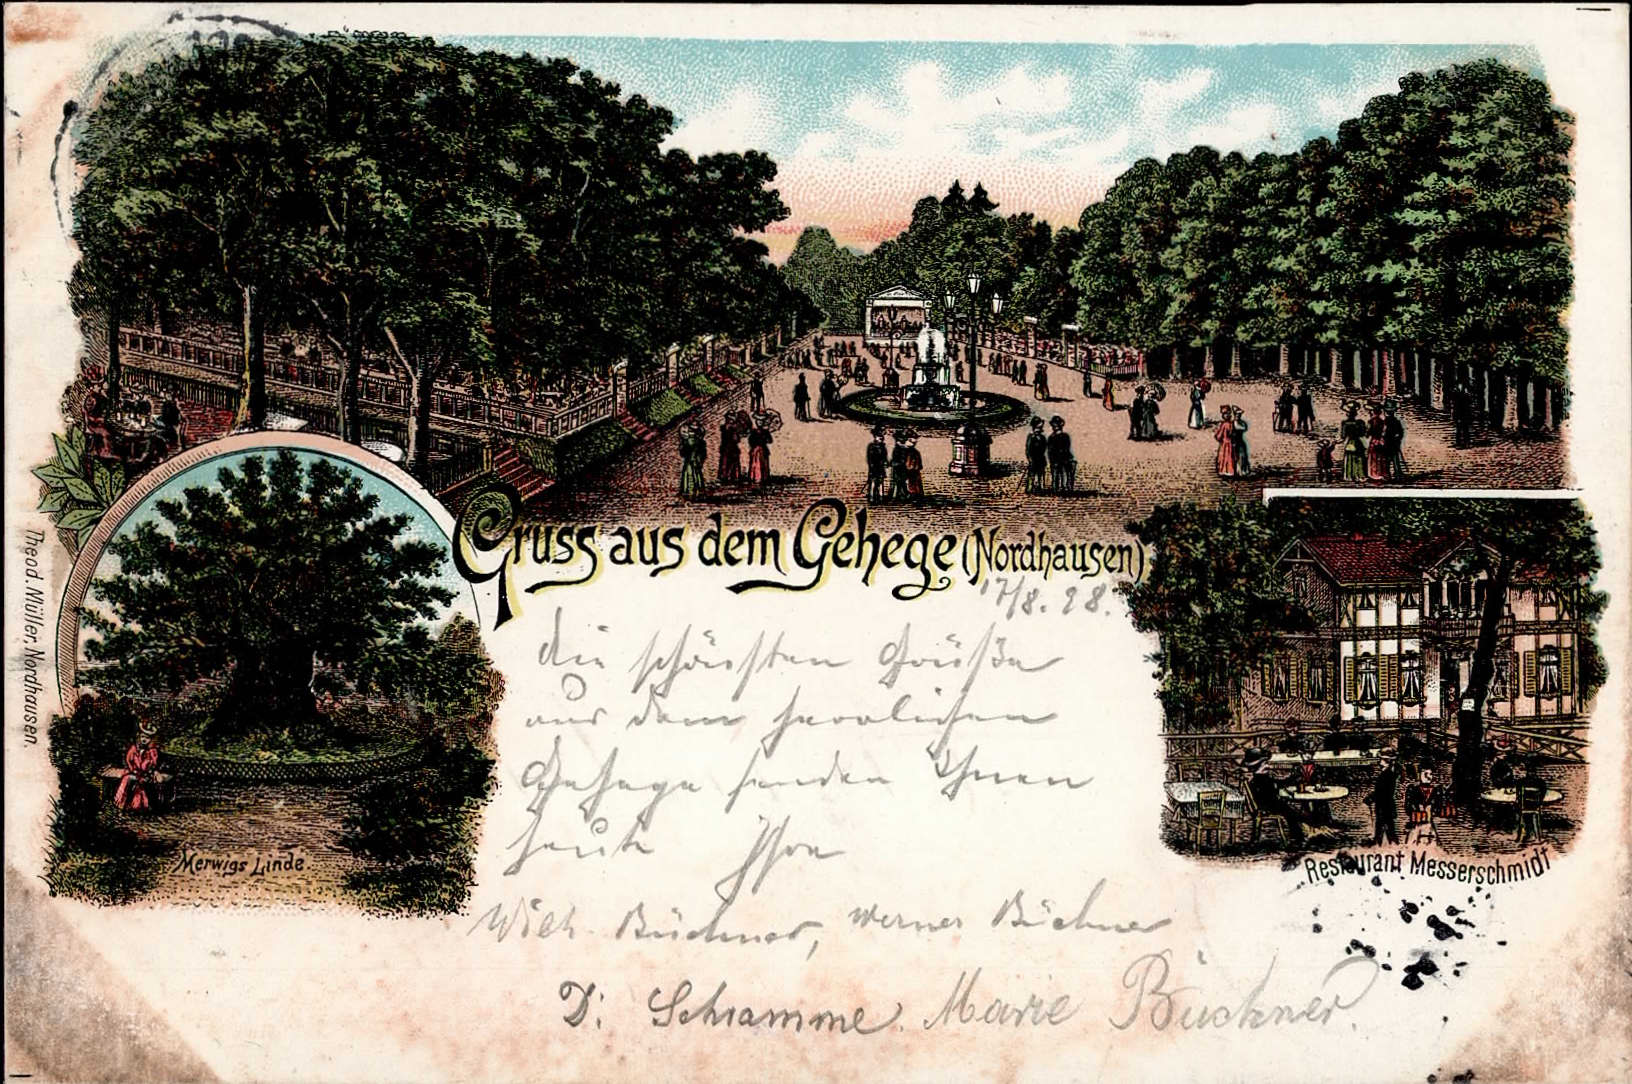 Gruss aus dem Gehege (Nordhausen)
17/8. 98.
Die schönsten Grüße
aus dem herrlichen
Gehege senden Ihnen
heute Ihre
Wilh. Büchner, Werner Büchner
D. Schramme. Marie Büchner.
Merwigs Linde.
Restaurant Messerschmidt
Theod. Müller, Nordhausen.